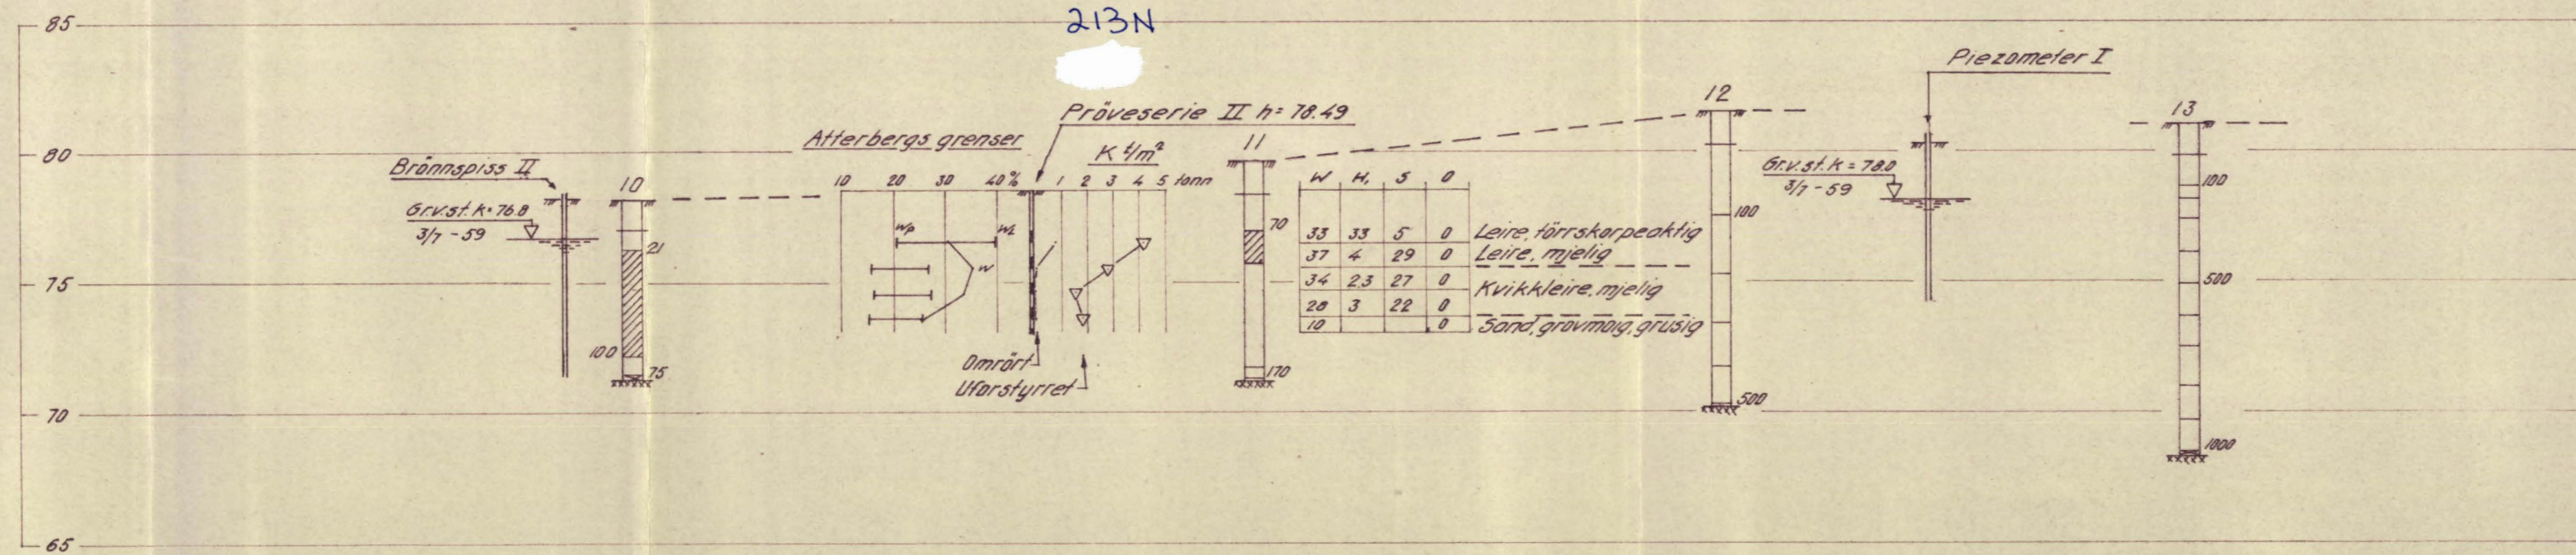 213N
85
80
75
70
65
Brönnspiss II
Gr.v.st. k= 76.8
3/7 - 59
10
21
100
75
Atterbergs grenser
10 20 30 40 %
Wp WL
W
Pröveserie II h= 78.49
K t/m²
1 2 3 4 5 tonn
Omrört
Uforstyrret
11
70
170
W H₁ S O
33 33 5 0 Leire, törrskorpeaktig
37 4 29 0 Leire, mjelig
34 2,3 27 0 Kvikkleire, mjelig
28 3 22 0
10 0 Sand, grovmoig, grusig
12
100
500
Piezometer I
Gr.v.st. k= 78.0
3/7 - 59
13
100
500
1000